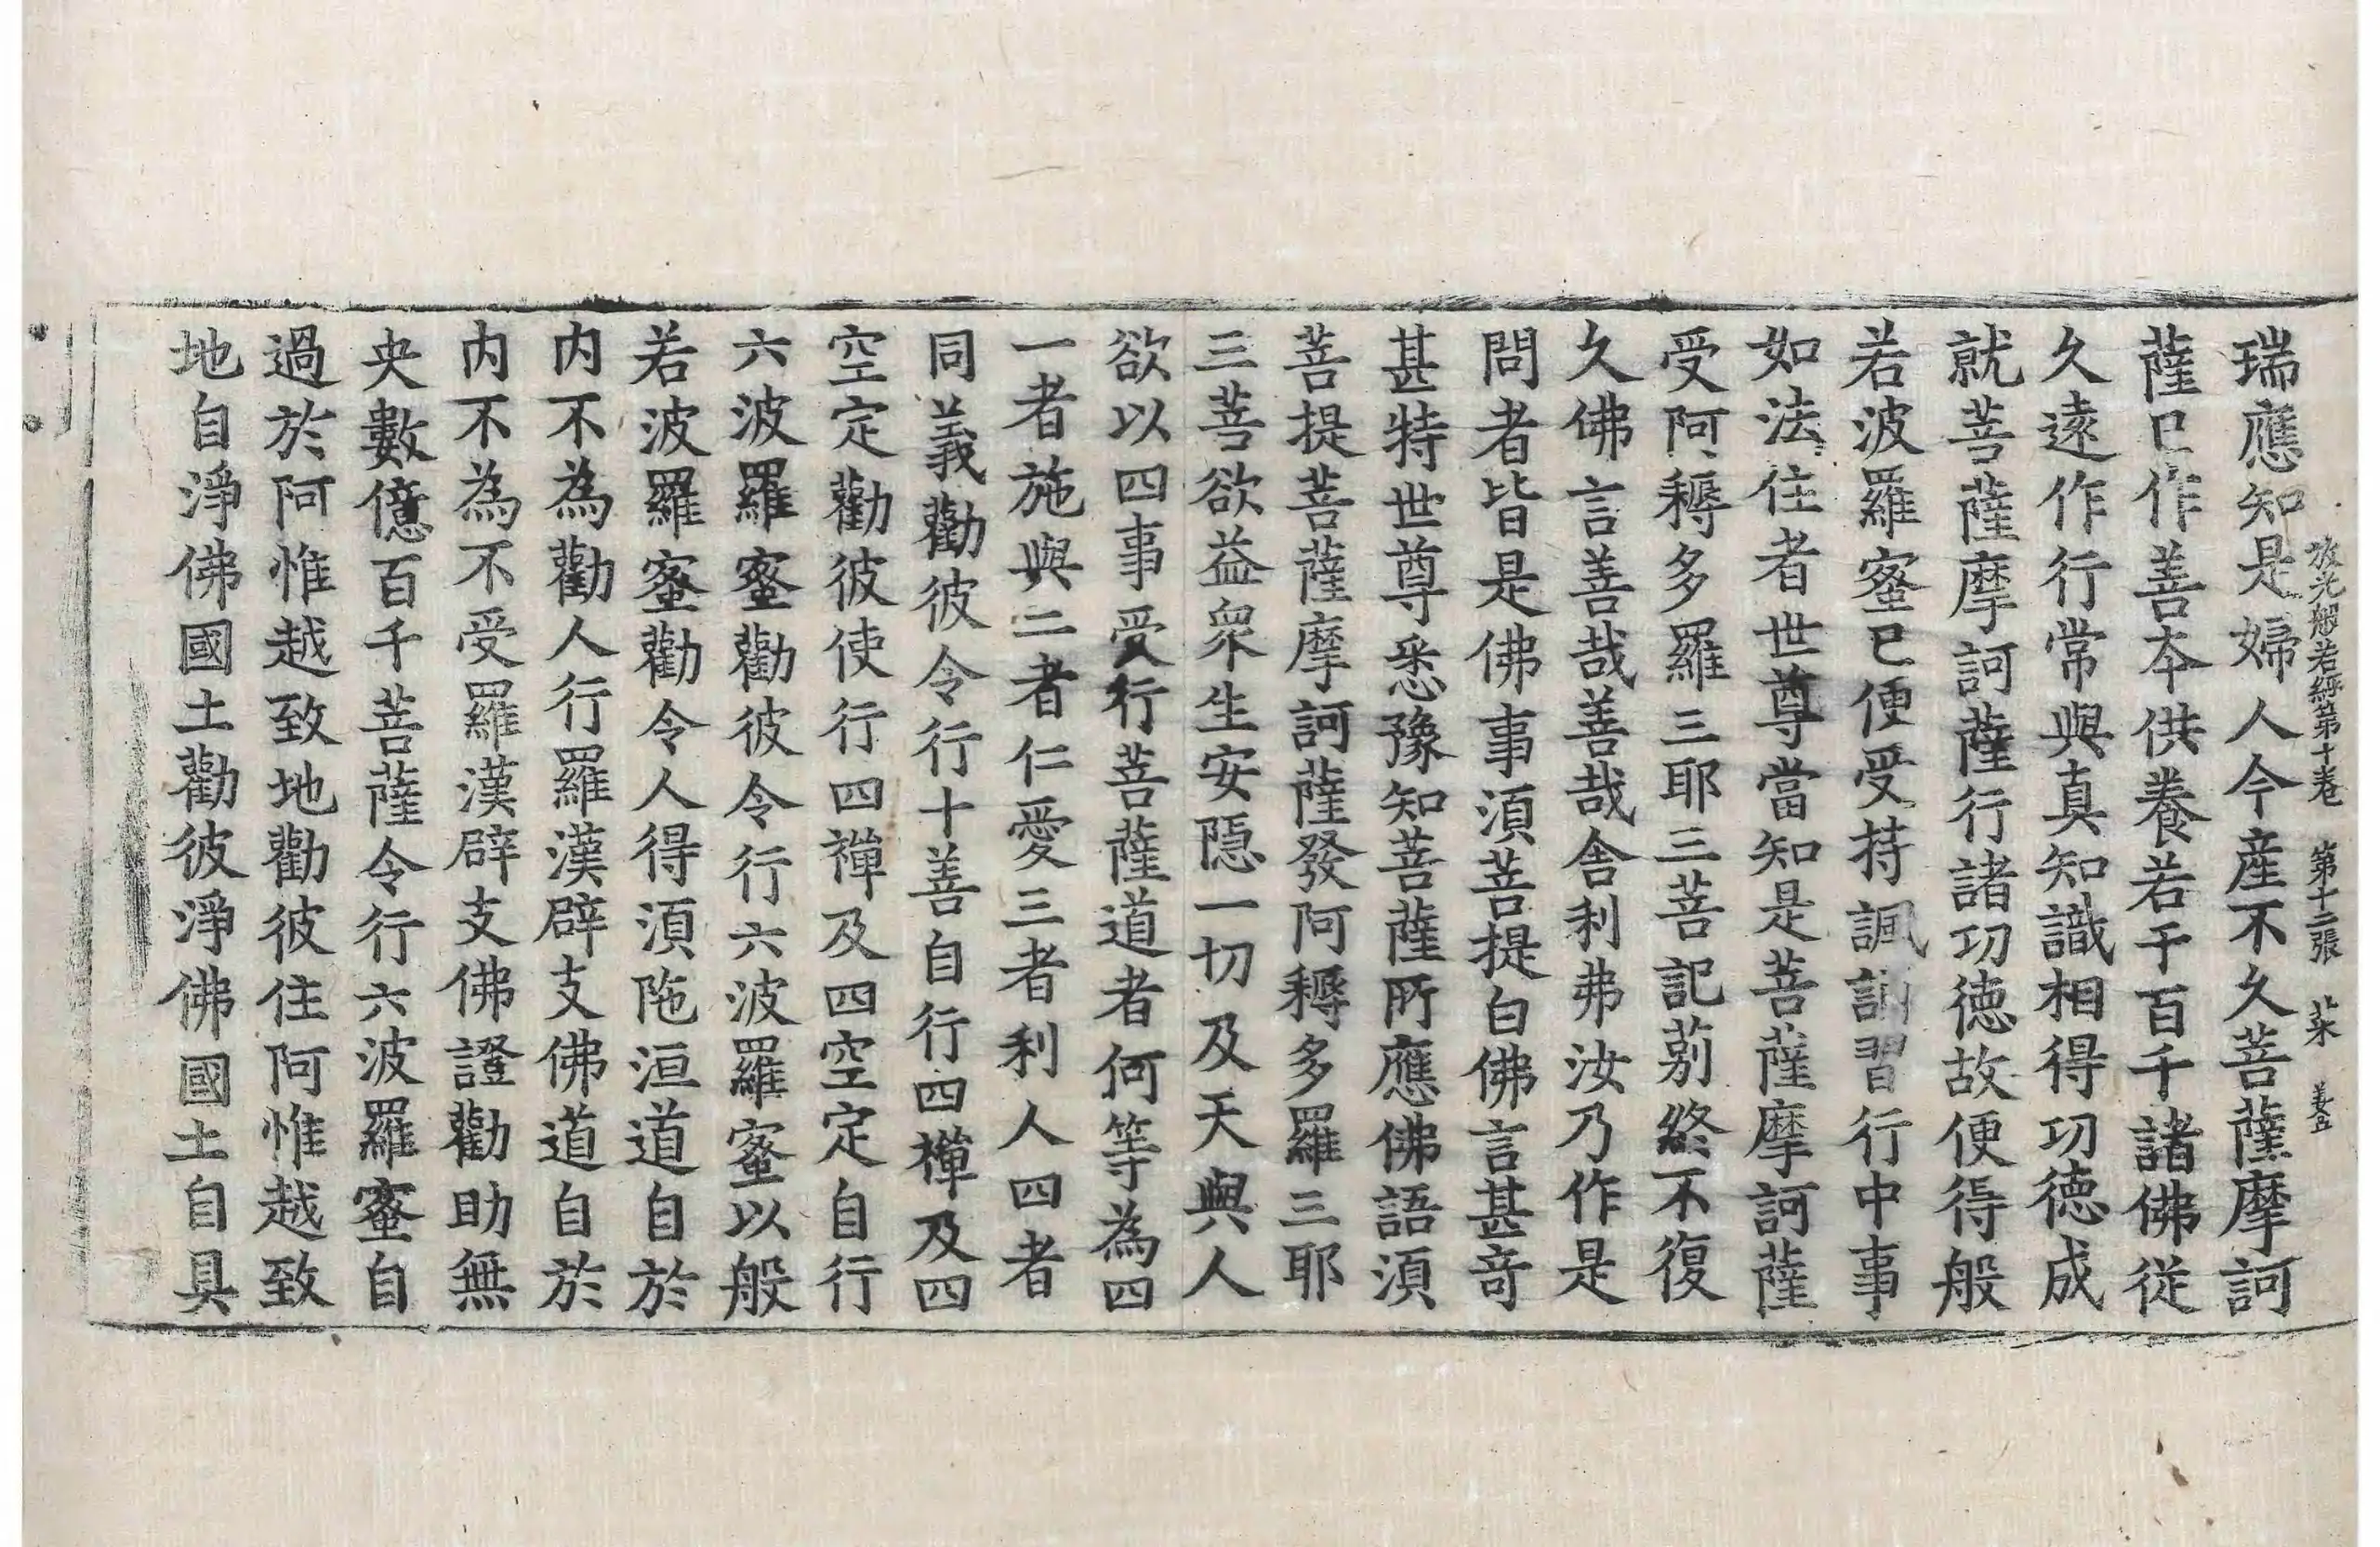 放光般若經第十卷 第十二張 菜 姜五
瑞應知是婦人今產不久菩薩摩訶
薩已作善本供養若干百千諸佛從
久遠作行常與真知識相得功德成
就菩薩摩訶薩行諸功德故便得般
若波羅蜜已便受持諷誦習行中事
如法住者世尊當知是菩薩摩訶薩
受阿耨多羅三耶三菩記莂終不復
久佛言善哉善哉舍利弗汝乃作是
問者皆是佛事湏菩提白佛言甚奇
甚特世尊悉豫知菩薩所應佛語湏
菩提菩薩摩訶薩發阿耨多羅三耶
三菩欲益衆生安隱一切及天與人
欲以四事受行菩薩道者何等為四
一者施與二者仁愛三者利人四者
同義勸彼令行十善自行四禪及四
空定勸彼使行四禪及四空定自行
六波羅蜜勸彼令行六波羅蜜以般
若波羅蜜勸令人得湏陁洹道自於
內不為勸人行羅漢辟支佛道自於
內不為不受羅漢辟支佛證勸助無
央數億百千菩薩令行六波羅蜜自
過於阿惟越致地勸彼住阿惟越致
地自淨佛國土勸彼淨佛國土自具